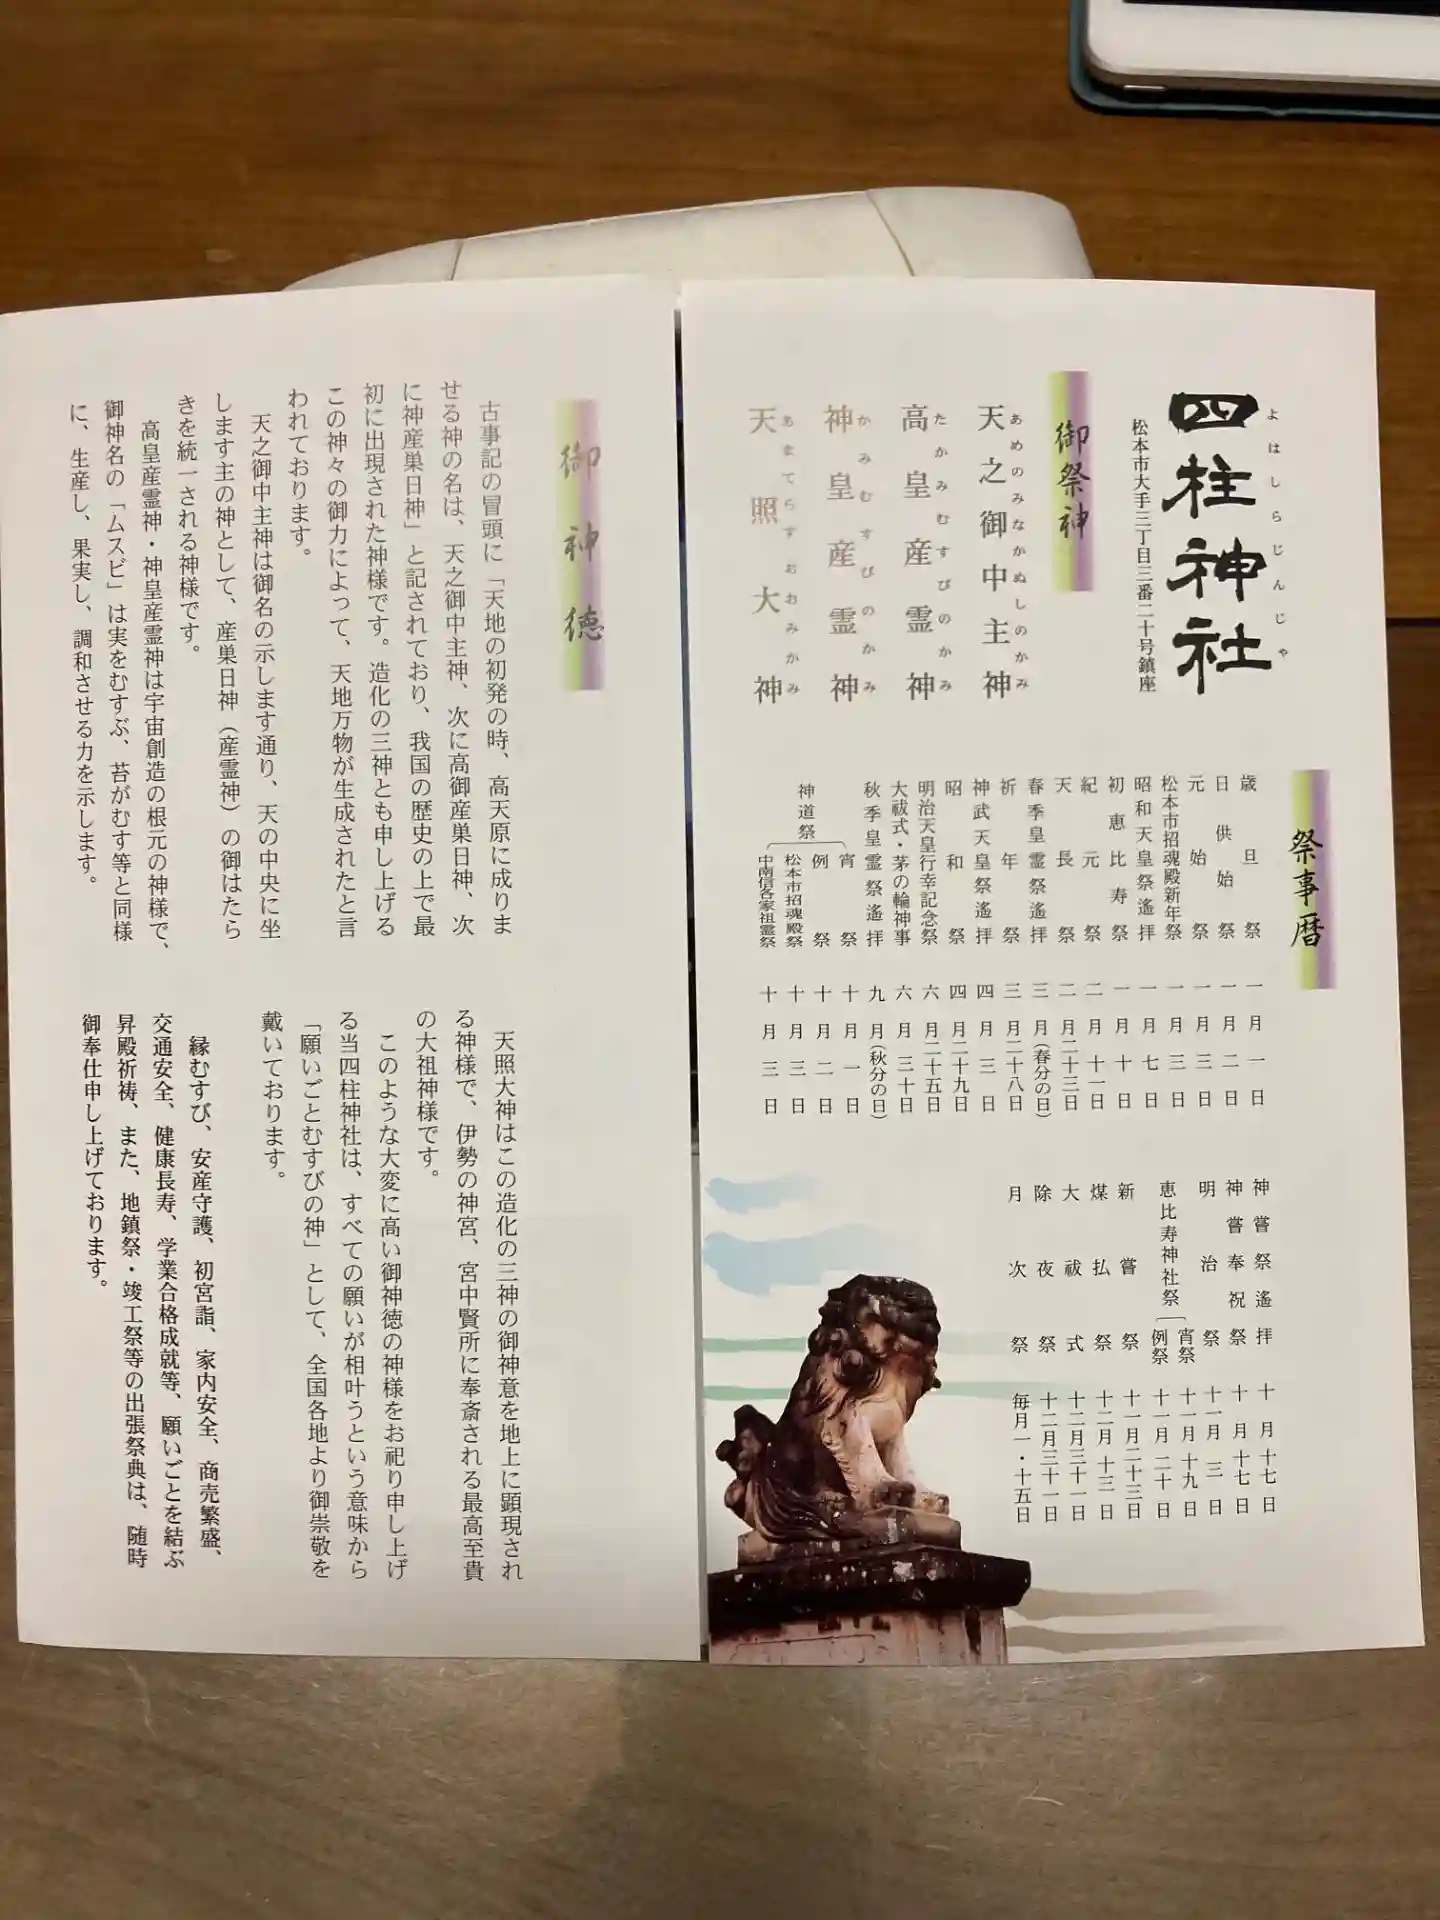 四柱神社
よはしらじんじゃ
松本市大手三丁目三番二十号鎮座
御祭神
天之御中主神
あめのみなかぬしのかみ
高皇産霊神
たかみむすびのかみ
神皇産霊神
かみむすびのかみ
天照大神
あまてらすおおみかみ
祭事暦
歳旦祭 一月一日
日供始祭 一月二日
元始祭 一月三日
松本市招魂殿新年祭 一月三日
昭和天皇祭遙拝 一月七日
初恵比寿祭 一月十日
紀元祭 二月十一日
天長祭 二月二十三日
春季皇霊祭遙拝 三月(春分の日)
祈年祭 三月二十八日
神武天皇祭遙拝 四月三日
昭和祭 四月二十九日
明治天皇行幸記念祭 六月二十五日
大祓式・茅の輪神事 六月三十日
秋季皇霊祭遙拝 九月(秋分の日)
神道祭
宵祭 十月一日
例祭 十月二日
松本市招魂殿祭 十月三日
中南信各家祖霊祭 十月三日
神嘗祭遙拝 十月十七日
神嘗奉祝祭 十月十七日
明治祭 十一月三日
恵比寿神社祭
宵祭 十一月十九日
例祭 十一月二十日
新嘗祭 十一月二十三日
煤払祭 十二月十三日
大祓式 十二月三十一日
除夜祭 十二月三十一日
月次祭 毎月一・十五日
御神徳
古事記の冒頭に「天地の初発の時、高天原に成りま
せる神の名は、天之御中主神、次に高御産巣日神、次
に神産巣日神」と記されており、我国の歴史の上で最
初に出現された神様です。造化の三神とも申し上げる
この神々の御力によって、天地万物が生成されたと言
われております。
天之御中主神は御名の示します通り、天の中央に坐
します主の神として、産巣日神（産霊神）の御はたら
きを統一される神様です。
高皇産霊神・神皇産霊神は宇宙創造の根元の神様で、
御神名の「ムスビ」は実をむすぶ、苔がむす等と同様
に、生産し、果実し、調和させる力を示します。
天照大神はこの造化の三神の御神意を地上に顕現され
る神様で、伊勢の神宮、宮中賢所に奉斎される最高至貴
の大祖神様です。
このような大変に高い御神徳の神様をお祀り申し上げ
る当四柱神社は、すべての願いが相叶うという意味から
「願いごとむすびの神」として、全国各地より御崇敬を
戴いております。
縁むすび、安産守護、初宮詣、家内安全、商売繁盛、
交通安全、健康長寿、学業合格成就等、願いごとを結ぶ
昇殿祈祷、また、地鎮祭・竣工祭等の出張祭典は、随時
御奉仕申し上げております。